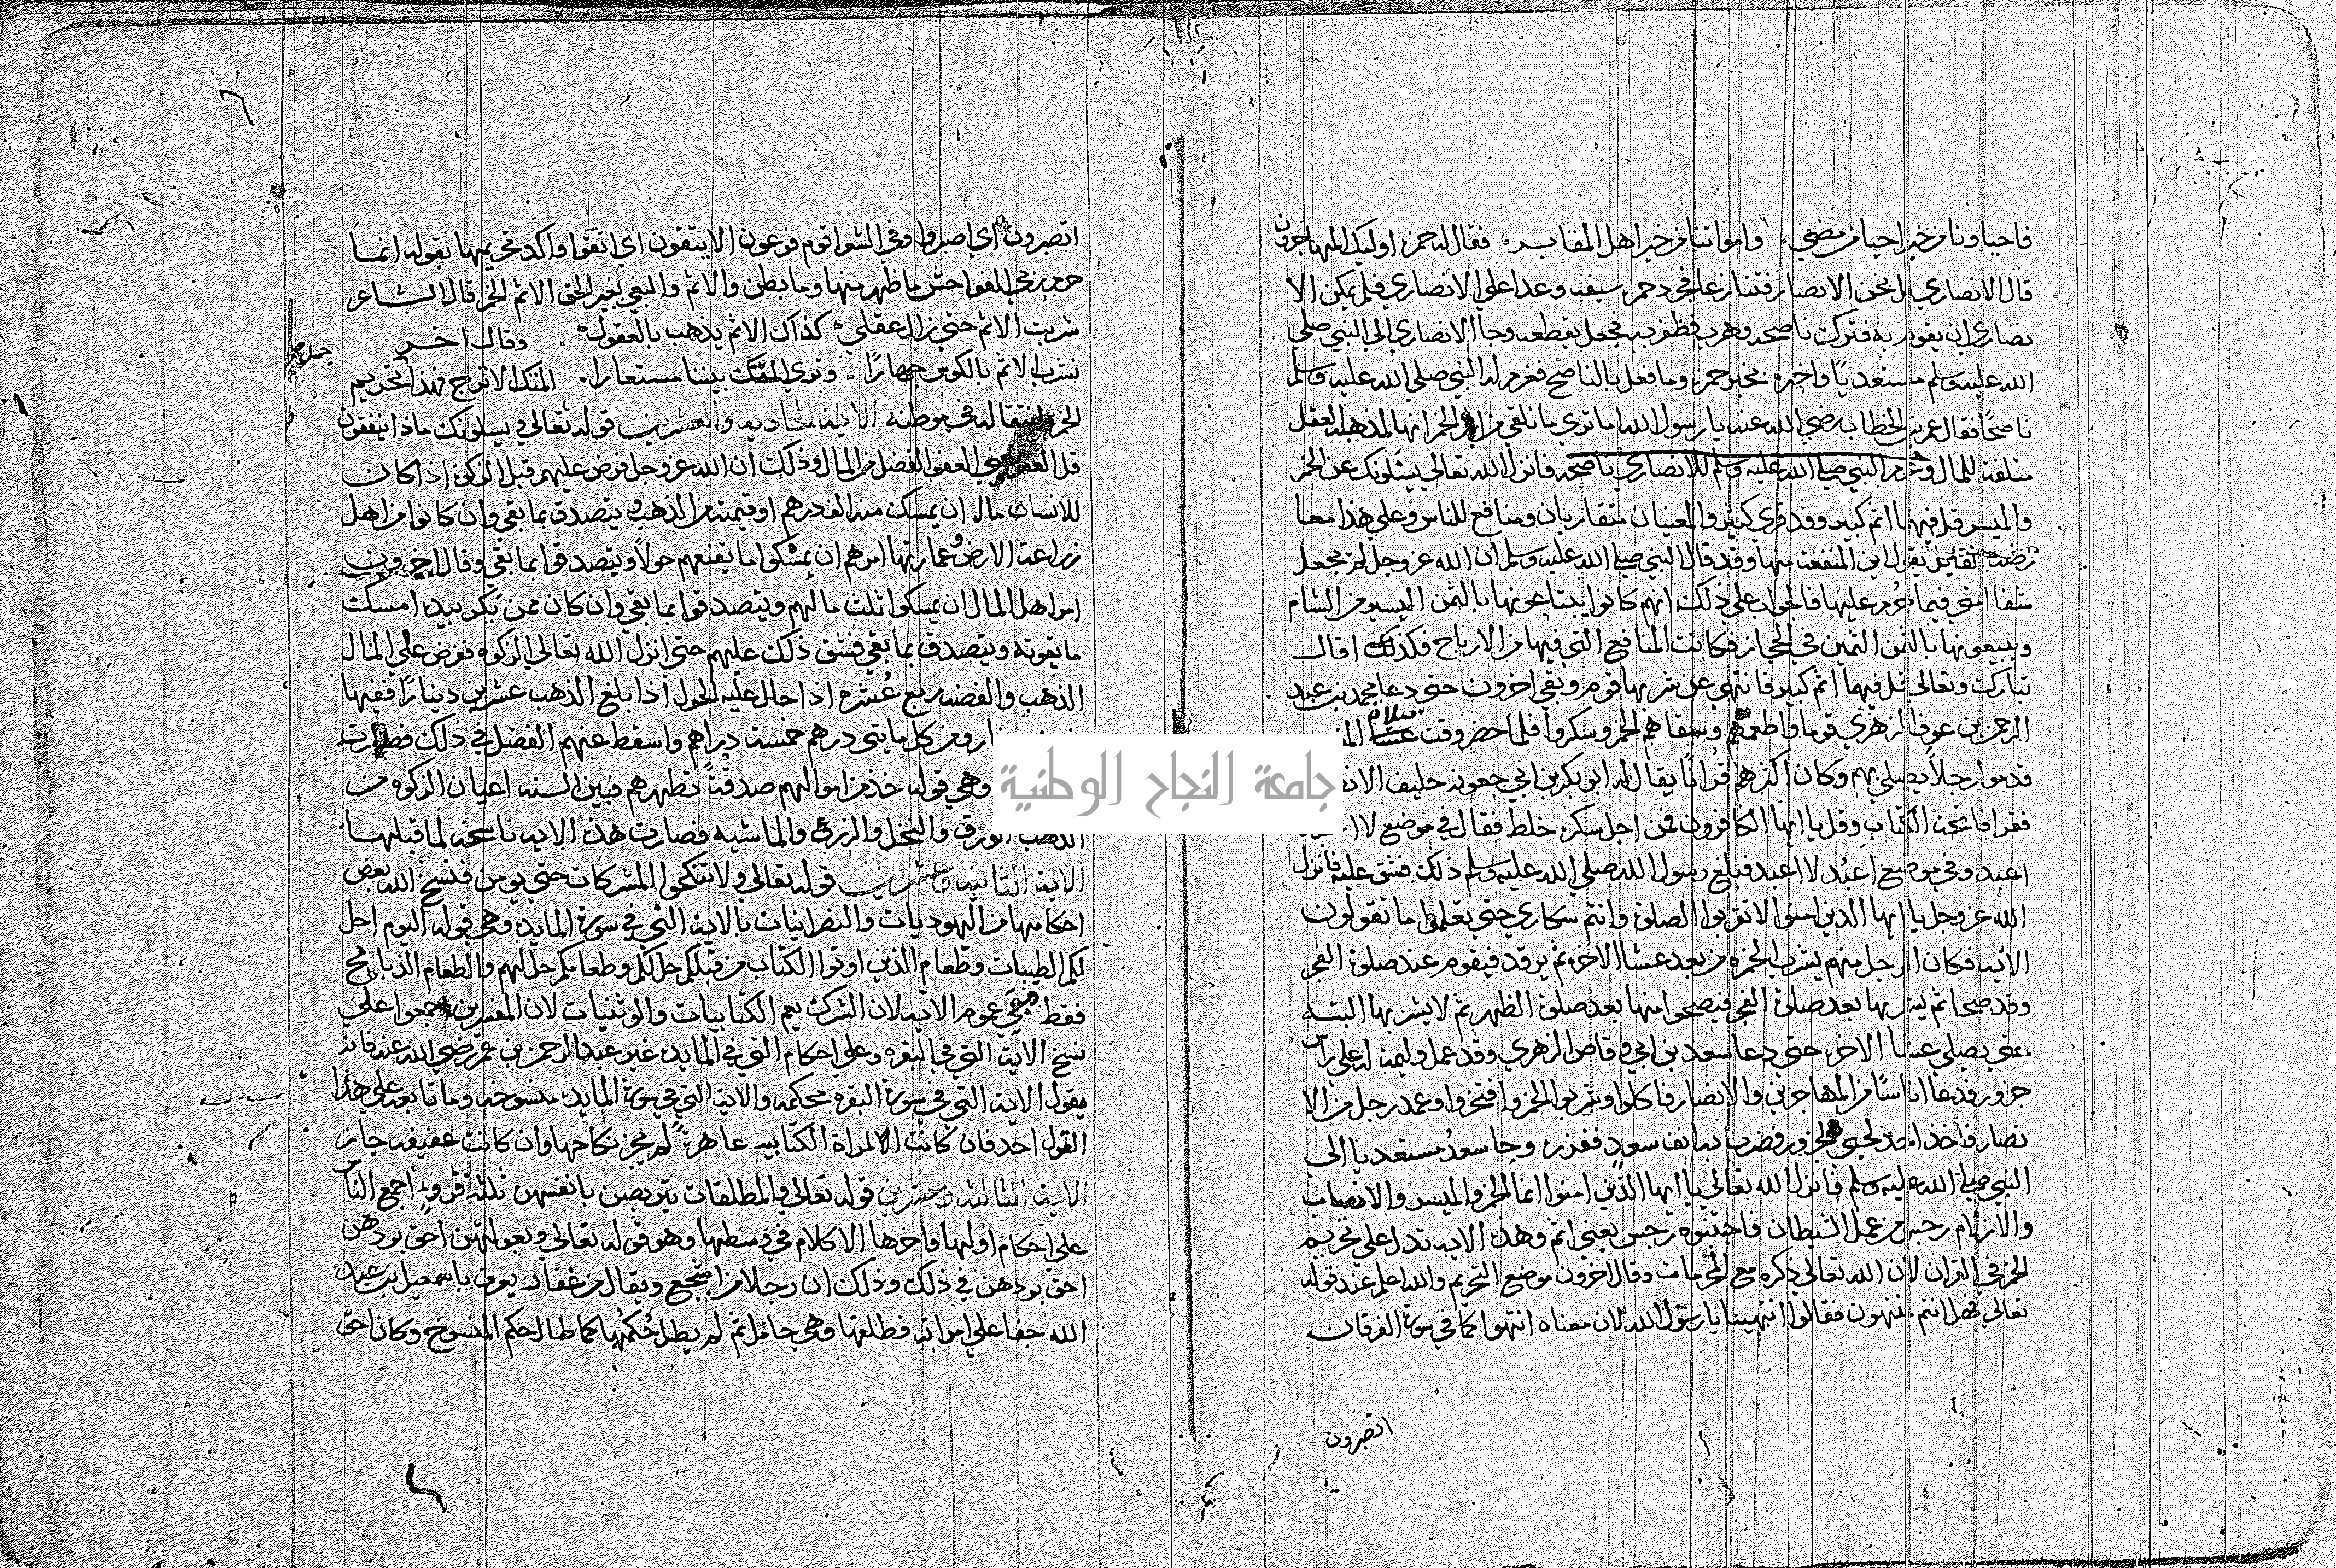 فاحياونا من خير احيا من مضي. وامواتنا من خير اهل المقابر. فقال له حمزة اوليك المهاجرون
قال الانصاري بل نحن الانصار فتنازعا فجرد حمزة سيفه وعدا علي الانصاري فلم يمكن الا
نصاري ان يقوم به فترك ناضحه وهرب فظفر به فجعل يقطعه وجا الانصاري الي النبي صلي
الله عليه وسلم مستعديًا واخبره بخبر حمزة وما فعل بالناضح فغرم له النبي صلي الله عليه وسلم
ناضحًا فقال عمر بن الخطاب رضي الله عنه يارسول الله اما تري ما نلقي من الخمر انها لمذهبة للعقل
متلفة للمال وغرم النبي صلي الله عليه وسلم للانصاري ناضحه فانزل الله تعالي يسئلونك عن الخمر
والميسر قل فيهما اثم كبير وقد قري كثير والمعنيان متقاربان ومنافع للناس وعلي هذا معا
رضة لقايل يقول اين المنفعة منها وقد قال النبي صلي الله عليه وسلم ان الله عز وجل لم يجعل
شفا امتي فيما حرم عليها فالجواب علي ذلك انهم كانوا يبتاعونها بالثمن اليسير من الشام
ويبيعونها بالثمن الثمين في الحجاز فكانت المنافع التي فيها من الارباح فكذلك قال
تبارك وتعالي قل فيهما اثم كبير فانتهي عن شربها قوم وبقي اخرون حتي دعا محمد بن عبد
الرحمن بن عوف الزهري قوما فاطعمهم وسقاهم الخمر وسكروا فلما حضر وقت صلاة
قدموا رجلا يصلي بهم وكان اكثرهم قرانًا يقال له ابو بكر بن ابي جعونه حليف
فقرا فاتحة الكتاب وقل يا ايها الكافرون فمن اجل سكره خلط فقال في موضع لا
اعبد وفي موضع اعبُد لا اعبد فبلغ رسول الله صلي الله عليه وسلم ذلك فشق عليه فانزل
الله عز وجل يا ايها الذين امنوا لا تقربوا الصلوة وانتم سكاري حتي تعلموا ما تقولون
الاية فكان الرجل منهم يشرب الخمرة من بعد عشا الاخرة ثم يرقد فيقوم عند صلوة الفجر
وقد صحا ثم يشربها بعد صلوة الفجر فيصحوا منها بعد صلوة الظهر ثم لا يشربها البته
حتي يصلي عشا الاخرة حتي دعا سعد بن ابي وقاص الزهري وقد عمل وليمة له علي راس
جزور فدعا اناسًا من المهاجرين والانصار فاكلوا وشربوا الخمر وافتخروا وعمد رجل من الا
نصار فاخذ احد لحيي الجزور فضرب به انف سعد ففزره وجا سعدُ مستعديا الي
النبي صلي الله عليه وسلم فانزل الله تعالي يا ايها الذين امنوا انما الخمر والميسر والانصاب
والازلام رجس من عمل الشيطان فاجتنبوه رجس يعني اثم وهذه الاية تدل علي تحريم
الخمر في القران لان الله تعالي ذكره مع المحرمات وقال اخرون موضع التحريم والله اعلم عند قوله
تعالي فهل انتم منتهون فقالوا انتهينا يا رسول الله لان معناه انتهوا كما في سورة الفرقان
اتصبرون
اتصبرون اي اصبروا وفي الشعرا قوم فرعون الا يتقون اي اتقوا واكد تحريمها بقوله انما
حرم ربي الفواحش ما ظهر منها وما بطن والاثم والبغي بغير الحق الاثم الخمر قال الشاعر
شربت الاثم حتي زال عقلي كذاك الاثم يذهب بالعقول وقال اخر
نشرب الاثم بالكوس جهارًا. وتري المتك بيننا مستعارا. المتك الاترج فهذا تحريم
الخمر وانتقاله في موطنه الاية الحادية والعشرين قوله تعالي ويسلونك ماذا ينفقون
قل العفو يعني العفو الفضل من المال وذلك ان الله عز وجل فرض عليهم قبل الزكوة اذا كان
للانسان مال ان يمسك منه الف درهم او قيمته من الذهب ويتصدق بما بقي وان كانوا من اهل
زراعة الارض وعمارتها امرهم ان يمسكوا ما يقنعهم حولًا ويتصدقوا بما بقي وقال اخرون
امر اهل المال ان يمسكوا ثلث مالهم ويتصدقوا بما بقي وان كان ممن يكد بيده امسك
ما يقوته ويتصدق بما بقي فشق ذلك عليهم حتي انزل الله تعالي الزكوة ففرض علي المال
الذهب والفضة ربع عُشره اذا حال عليه الحول اذا بلغ الذهب عشرين دينارًا ففيها
ومن كل مايتي درهم خمسة دراهم واسقط عنهم الفضل في ذلك فصارت
وهي قوله خذ من اموالهم صدقةً تطهرهم فبين السنة اعيان الزكوة من
الذهب والورق والنخل والزرع والماشيه فصارت هذه الاية ناسخة لما قبلها
الاية الثانية وعشرين قوله تعالي ولا تنكحوا المشركات حتي يومن فنسخ الله بعض
احكامها من اليهوديات والنصرانيات بالاية التي في سورة المايدة وهي قوله اليوم احل
لكم الطيبات وطعام الذين اوتوا الكتاب من قبلكم حل لكم وطعامكم حل لهم والطعام الذبايح
فقط فبقي عموم الاية لان الشرك يعم الكتابيات والوثنيات لان المفسرين اجمعوا علي
نسخ الاية التي في البقره وعلي احكام التي في المايدة غير عبد الرحمن بن عمر رضي الله عنه فانه
يقول الاية التي في سورة البقره محكمة والاية التي في سورة المايدة منسوخة وما تابعه علي هذا
القول احد فان كانت المراة الكتابيه عاهرةً لم يجز نكاحها وان كانت عفيفه جاز
الاية الثالثة وعشرين قوله تعالي والمطلقات يتربصن بانفسهن ثلثة قروء اجمع الناس
علي احكام اولها واخرها الا كلام في وسطها وهو قوله تعالي وبعولتهن احق بردهن
احق بردهن في ذلك وذلك ان رجلا من اشجع ويقال من غفار يعرف باسمعيل بن عبد
الله جفا علي امراته فطلقها وهي حامل ثم لم يطل حُكمها كما طال حكم المنسوخ وكان احق
جامعة النجاح الوطنية